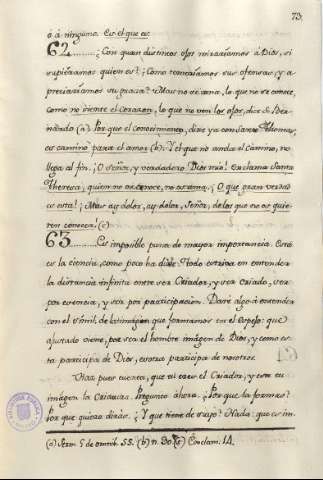 73.
ó á ninguno. Es el que es.
62........¿Con quan distintos ojos miraríamos á Dios, si
supieramos quien es? ¿Como temeríamos sus ofensas, y a-
preciaríamos su gracia? Mas no se ama, lo que no se conoce,
como no siente el corazon, lo que no ven los ojos, dice S. Ber-
nardo (a). Porque el conocimiento, dice ya con claro Thomas,
es camino para el amor (b). Y el que no anda el camino, no
llega al fin. ¡O Señor, y verdadero Dios mio! Exclama Santa
Theresa, quien no os conoce, no os ama. ¡O que gran verdad
es esta! ¡Mas ay dolor, ay dolor, Señor, de los que no os quie-
ren conocer! (c)
63........Es imposible punto de mayor importancia. Esta
es la ciencia, como poco ha dixe. Todo estriva en entender
la distancia infinita entre ser Criador, y ser criado, ser
por esencia, y ser por participacion. Daré algo á entender
con el simil de la imagen que formamos en el Espejo: que
ajustado viene, por ser el hombre imagen de Dios, y como es-
ta participa de Dios, esotra participa de nosotros.
Haz pues cuenta, que tu eres el Criador, y esta tu
imagen la Criatura. Pregunto ahora. ¿Por que la formas?
Por que quiero dirás. ¿Y que tiene de suyo? Nada: que es im-
(a) Serm. 5 de omnib. SS. (b) n. 30. (c) Exclam. 14.